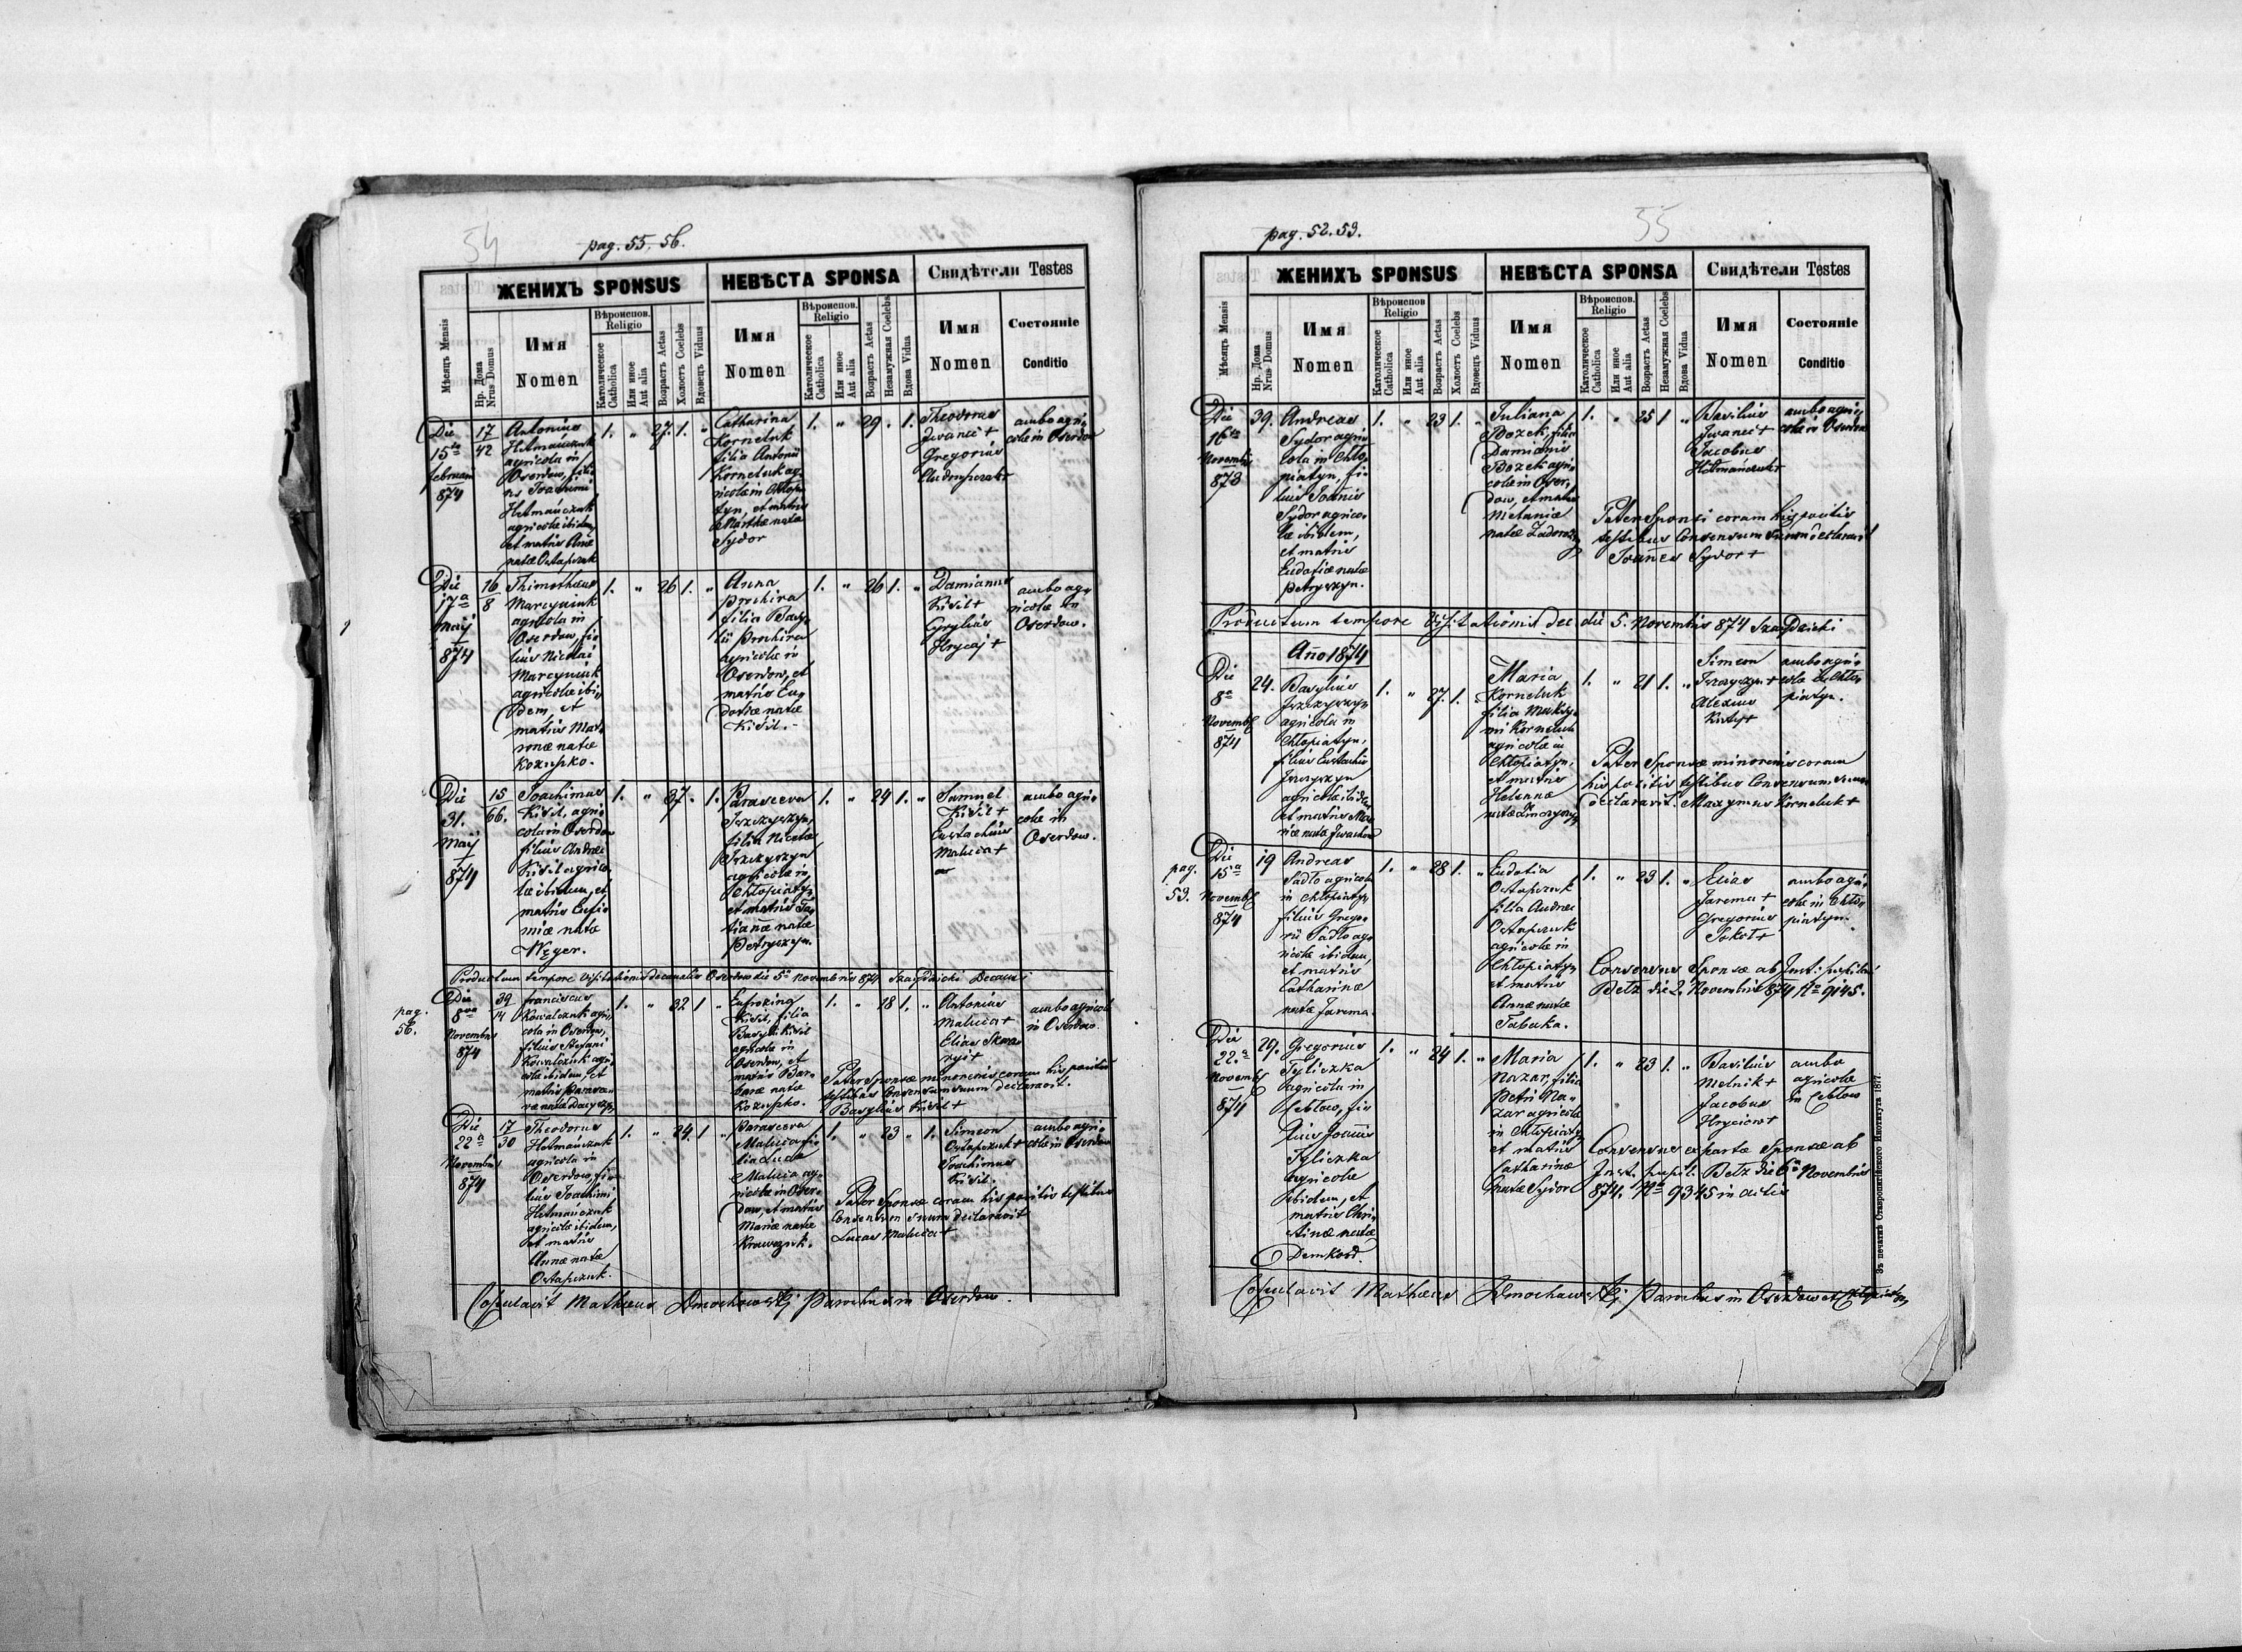 54
pag. 55. 56.
ЖЕНИХЪ SPONSUS
НЕВѢСТА SPONSA
Свидѣтели Testes
Мѣсяцъ Mensis
Нр. Дома
Nrus Domus
Имя
Nomen
Вѣроиспов.
Religio
Католическое
Catholica
Или иное
Aut alia
Возрастъ Aetas
Холостъ Coelebs
Вдовецъ Viduus
Имя
Nomen
Вѣроиспов.
Religio
Католическое
Catholica
Или иное
Aut alia
Возрастъ Aetas
Незамужная Coelebs
Вдова Vidua
Имя
Nomen
Состояніе
Conditio
Die
15ta
februarii
874
17
42
Antonius
Hetmańczuk
agricola in
Oserdow, fili-
us Joachimi
Hetmańczuk
agricolæ ibidem,
et matris Annæ
natæ Ostapczuk
1. " 27. 1. "
Catharina
Korneluk
filia Antonii
Korneluk ag-
ricolæ in Chłopia-
tyn, et matris
Marthæ natæ
Sydor
1. " 29. " 1.
Theodorus
Iwanec +
Gregorius
ambo agri-
colæ in Oserdow
Die
17a
Maij
874
16
8
Thimotheus
Marcyniuk
agricola in
Oserdow, fi-
lius Nicolai
Marcyniuk
agricolæ ibi-
dem, et
matris Mat-
ronæ natæ
Kozupko.
1. " 26 1. "
Anna
Prochira
filia Basy-
lii Prochira
agricolæ in
Oserdow, et
matris Eu-
dociæ natæ
Kisil.
1. " 26 1. "
Damianus
Kisil +
Cyrylius
Hrycaj +
ambo ag-
ricolæ in
Oserdow.
Die
31.
Maij
874
15
66.
Joachimus
Kisil, agri-
cola in Oserdow
filius Andreæ
Kisil agrico-
læ ibidem, et
matris Eufi-
miæ natæ
Węger.
1. " 37. " 1.
Parasceva
Irzczyszyn,
filia Nicolai
Irzczyszyn
agricolæ in
Chłopiatyn
et matris Ta-
tiannæ natæ
Petryszyn.
1. " 24 1. "
Samuel
Kisil +
Eustachius
Maluca +
ambo agri-
colæ in
Oserdow.
Productum tempore Visitationis decanalis Oserdow die 5a Novembris 874 Decani
pag.
56.
Die
8va
Novembris
874
39
14
Franciscus
Kowalczuk agri-
cola in Oserdow,
filius Stefani
Kowalczuk agri-
colæ ibidem, et
1. " 32 1 "
Eufrozina
Kisil, filia
Basylii Kisil
agricolæ in
Oserdow, et
matris Bar-
baræ natæ
Kozupko.
1. " 18 1. "
Antonius
Maluca +
Elias
ambo agricolæ
in Oserdow
Pater Sponsæ minorenis coram his positis
testibus Consensum suum declaravit.
Basylius Kisil +
Die
22a
Novembris
874
17
30
Theodorus
Hetmańczuk
agricola in
Oserdow, fi-
lius Joachimi
Hetmańczuk
agricolæ ibidem,
et matris
Annæ natæ
Ostapczuk.
1. " 24. 1 "
Parasceva
Maluca fi-
lia Lucæ
Maluca ag-
ricolæ in Oser-
dow, et matris
Mariæ natæ
Krawczuk.
1. " 23 " 1.
Simeon
Ostapczuk +
Joachimus
Kisil.
ambo agri-
colæ in Oserdow
Pater Sponsæ coram his positis testibus
Consensum suum declaravit
Lucas Maluca +
Copulavit Mathæus Dmochowski Parochus in Oserdow.
55
pag. 52. 53.
ЖЕНИХЪ SPONSUS
НЕВѢСТА SPONSA
Свидѣтели Testes
Мѣсяцъ Mensis
Нр. Дома
Nrus Domus
Имя
Nomen
Вѣроиспов.
Religio
Католическое
Catholica
Или иное
Aut alia
Возрастъ Aetas
Холостъ Coelebs
Вдовецъ Viduus
Имя
Nomen
Вѣроиспов.
Religio
Католическое
Catholica
Или иное
Aut alia
Возрастъ Aetas
Незамужная Coelebs
Вдова Vidua
Имя
Nomen
Состояніе
Conditio
Die
16ta
Novembris
873
39.
Andreas
Sydor agri-
cola in Chło-
piatyn, fi-
lius Joannis
Sydor agrico-
læ ibidem,
et matris
Eudociæ natæ
Petryszyn.
1. " 23 1. "
Juliana
Bozek, filia
Damiani
Bozek agri-
colæ in Oser-
dow, et matris
Melaniæ
natæ
1. " 25 1 "
Basilius
Iwanec +
Jacobus
Hetmańczuk +
ambo agri-
colæ in Oserdow
Pater Sponsi coram his positis
testibus Consensum suum declaravit
Joannes Sydor +
Productum tempore Visitationis dec die 5. Novembris 874
Año 1874
Die
8a
Novemb
874
24.
Basylius
Irzczyszyn
agricola in
Chłopiatyn,
filius Eustachii
Irzczyszyn
agricolæ ibidem
et matris Ma-
riæ natæ
1. " 27. 1. "
Maria
Korneluk
filia Maksy-
mi Korneluk
agricolæ in
Chłopiatyn,
et matris
Helennæ
natæ
1. " 21 1. "
Simeon
Irzczyszyn +
Alexius
ambo agri-
colæ in Chło-
piatyn.
Pater Sponsæ minorenis coram
his positis testibus Consensum suum
declaravit. Maxymus Korneluk +
pag.
53.
Die
15a
Novemb
874
19
Andreas
Sadło agricola
in Chłopiatyn
filius Grego-
rii Sadło ag-
ricolæ ibidem,
et matris
Catharinæ
natæ Jarema.
1. " 28 1. "
Eudotia
Ostapczuk
filia Andreæ
Ostapczuk
agricolæ in
Chłopiatyn
et matris
Annæ natæ
Tabaka.
1. " 23 1. "
Elias
Jarema +
Gregorius
Sokoł +
ambo agri-
colæ in Chło-
piatyn.
Consensus Sponsæ ab
Bełz die 2. Novembris 874 No 9145.
Die
22.a
Novemb
874
29.
Gregorius
Tyliczka
agricola in
Cebłow, fi-
lius Joannis
Tyliczka
agricolæ
ibidem, et
matris Chri-
stinæ natæ
1. " 24 1. "
Maria
Nazar, filia
Petri Na-
zar agricolæ
in Chłopiatyn
et matris
Catharinæ
natæ Sydor
1. " 23 1. "
Basilius
Melnik +
Jacobus
Hryciow +
ambo
agricolæ
in Cebłow
Consensus ex parte Sponsæ ab
Inst. pupil. Bełz die 6a Novembris
874. No 9345 in actis
Copulavit Mathæus Dmochowski Parochus in Oserdow et Chłopiatyn
Зъ печатнѣ Ставропигійского Института 1877.